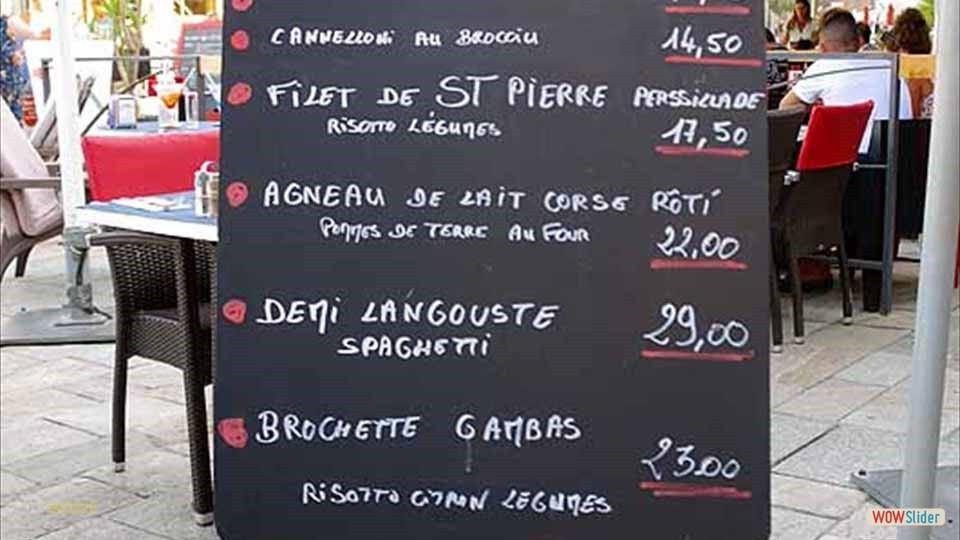 CANNELLONI AU BROCCIU 14,50
FILET DE ST PIERRE PERSSILLADE
RISOTTO LÉGUMES 17,50
AGNEAU DE LAIT CORSE RÔTI
POMMES DE TERRE AU FOUR 22,00
DEMI LANGOUSTE 29,00
SPAGHETTI
BROCHETTE GAMBAS
23.00
RISOTTO CITRON LEGUMES
WOWSlider.